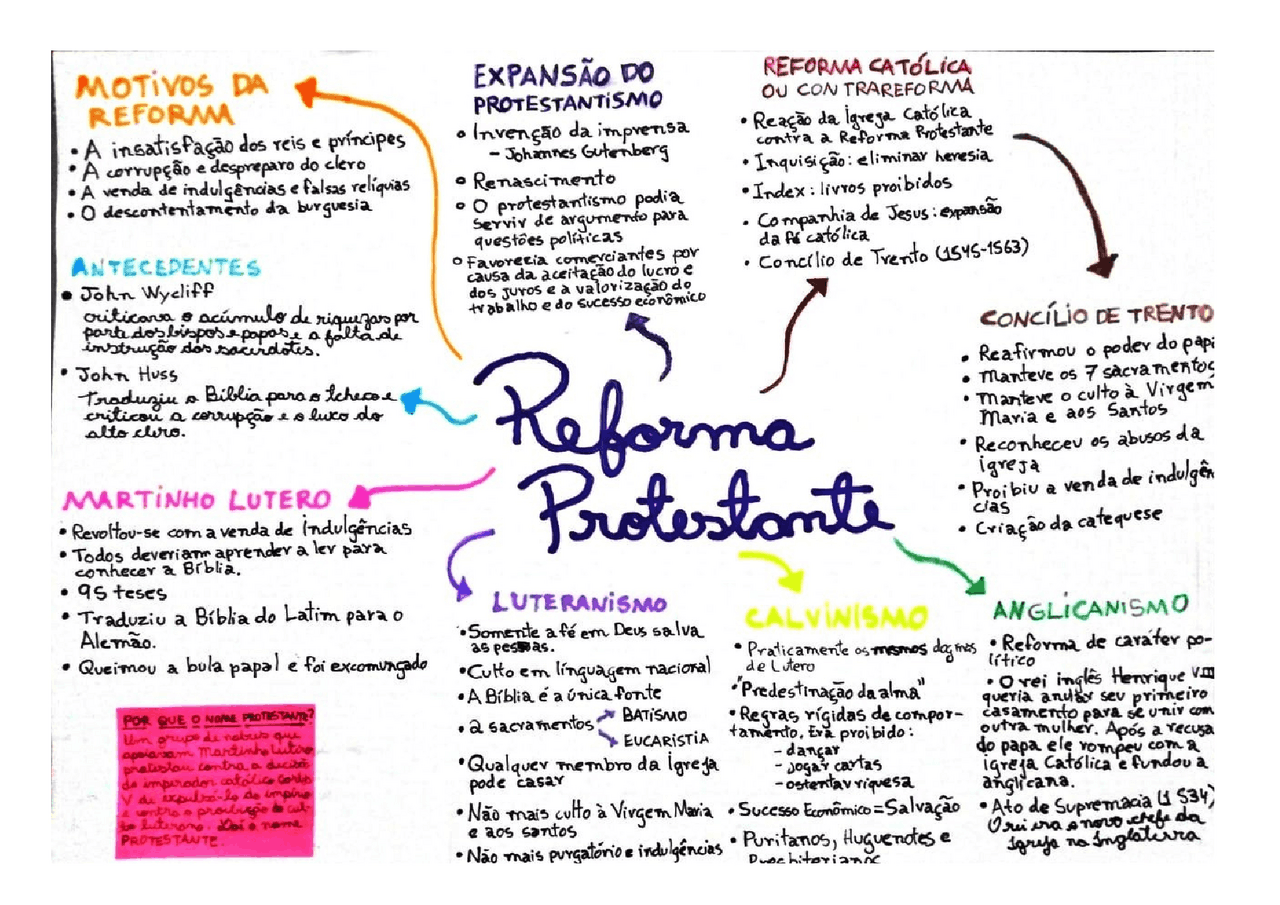 MOTIVOS DA
REFORMA
• A insatisfação dos reis e príncipes
• A corrupção e despreparo do clero
• A venda de indulgências e falsas relíquias
• O descontentamento da burguesia
ANTECEDENTES
• John Wycliff
criticava o acúmulo de riquezas por
parte dos bispos e papas e a falta de
instrução dos sacerdotes.
• John Huss
Traduziu a Bíblia para o tcheco e
criticou a corrupção e o luxo do
alto clero.
MARTINHO LUTERO
• Revoltou-se com a venda de Indulgências
• Todos deveriam aprender a ler para
conhecer a Bíblia.
• 95 teses
• Traduziu a Bíblia do Latim para o
Alemão.
• Queimou a bula papal e foi excomungado
POR QUE O NOME PROTESTANTE?
Um grupo de nobres que
apoiavam Martinho Lutero
protestou contra a decisão
do imperador católico Carlos
V de expulsá-lo do império
e contra a proibição do cul-
to luterano. Daí o nome
PROTESTANTE.
EXPANSÃO DO
PROTESTANTISMO
• Invenção da imprensa
- Johannes Gutenberg
• Renascimento
• O protestantismo podia
servir de argumento para
questões políticas
• Favorecia comerciantes por
causa da aceitação do lucro e
dos juros e a valorização do
trabalho e do sucesso econômico
REFORMA CATÓLICA
OU CONTRAREFORMA
• Reação da Igreja Católica
contra a Reforma Protestante
• Inquisição: eliminar heresia
• Index: livros proibidos
• Companhia de Jesus: expansão
da fé católica
• Concílio de Trento (1545-1563)
CONCÍLIO DE TRENTO
• Reafirmou o poder do papa
• Manteve os 7 sacramentos
• Manteve o culto à Virgem
Maria e aos Santos
• Reconheceu os abusos da
igreja
• Proibiu a venda de indulgên
cias
• Criação da catequese
Reforma
Protestante
LUTERANISMO
• Somente a fé em Deus salva
as pessoas.
• Culto em línguagem nacional
• A Bíblia é a única fonte
• 2 sacramentos BATISMO
EUCARISTIA
• Qualquer membro da Igreja
pode casar
• Não mais culto à Virgem Maria
e aos santos
• Não mais purgatório e indulgências
CALVINISMO
• Praticamente os mesmos dogmas
de Lutero
• "Predestinação da alma"
• Regras rígidas de compor-
tamento. Era proibido:
- dançar
- jogar cartas
- ostentar riquesa
• Sucesso Econômico = Salvação
• Puritanos, Huguenotes e
Presbiterianos
ANGLICANISMO
• Reforma de caráter po-
lítico
• O rei inglês Henrique VIII
queria anular seu primeiro
casamento para se unir com
outra mulher. Após a recusa
do papa ele rompeu com a
igreja Católica e fundou a
anglicana.
• Ato de Supremacia (1534)
O rei era o novo chefe da
Igreja na Inglaterra